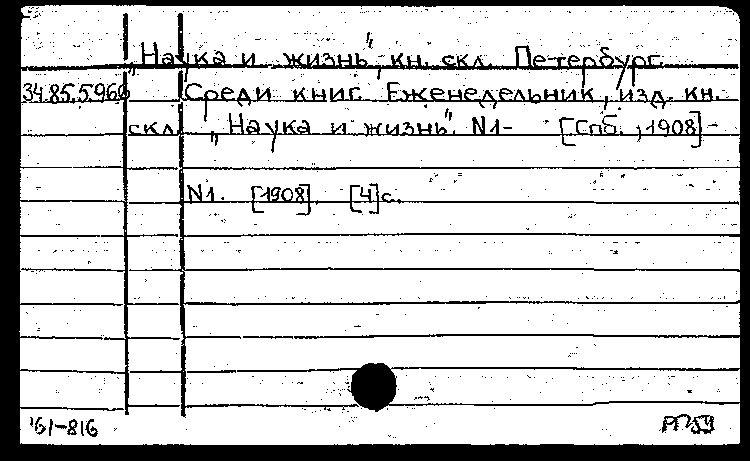 „Наука и жизнь", кн. скл. Петербург.
34.85.5.966 Среди книг. Еженедельник, изд. кн.
скл. „Наука и жизнь". N1- [Спб., 1908]-
N1. [1908]. [4]с.
'61-816